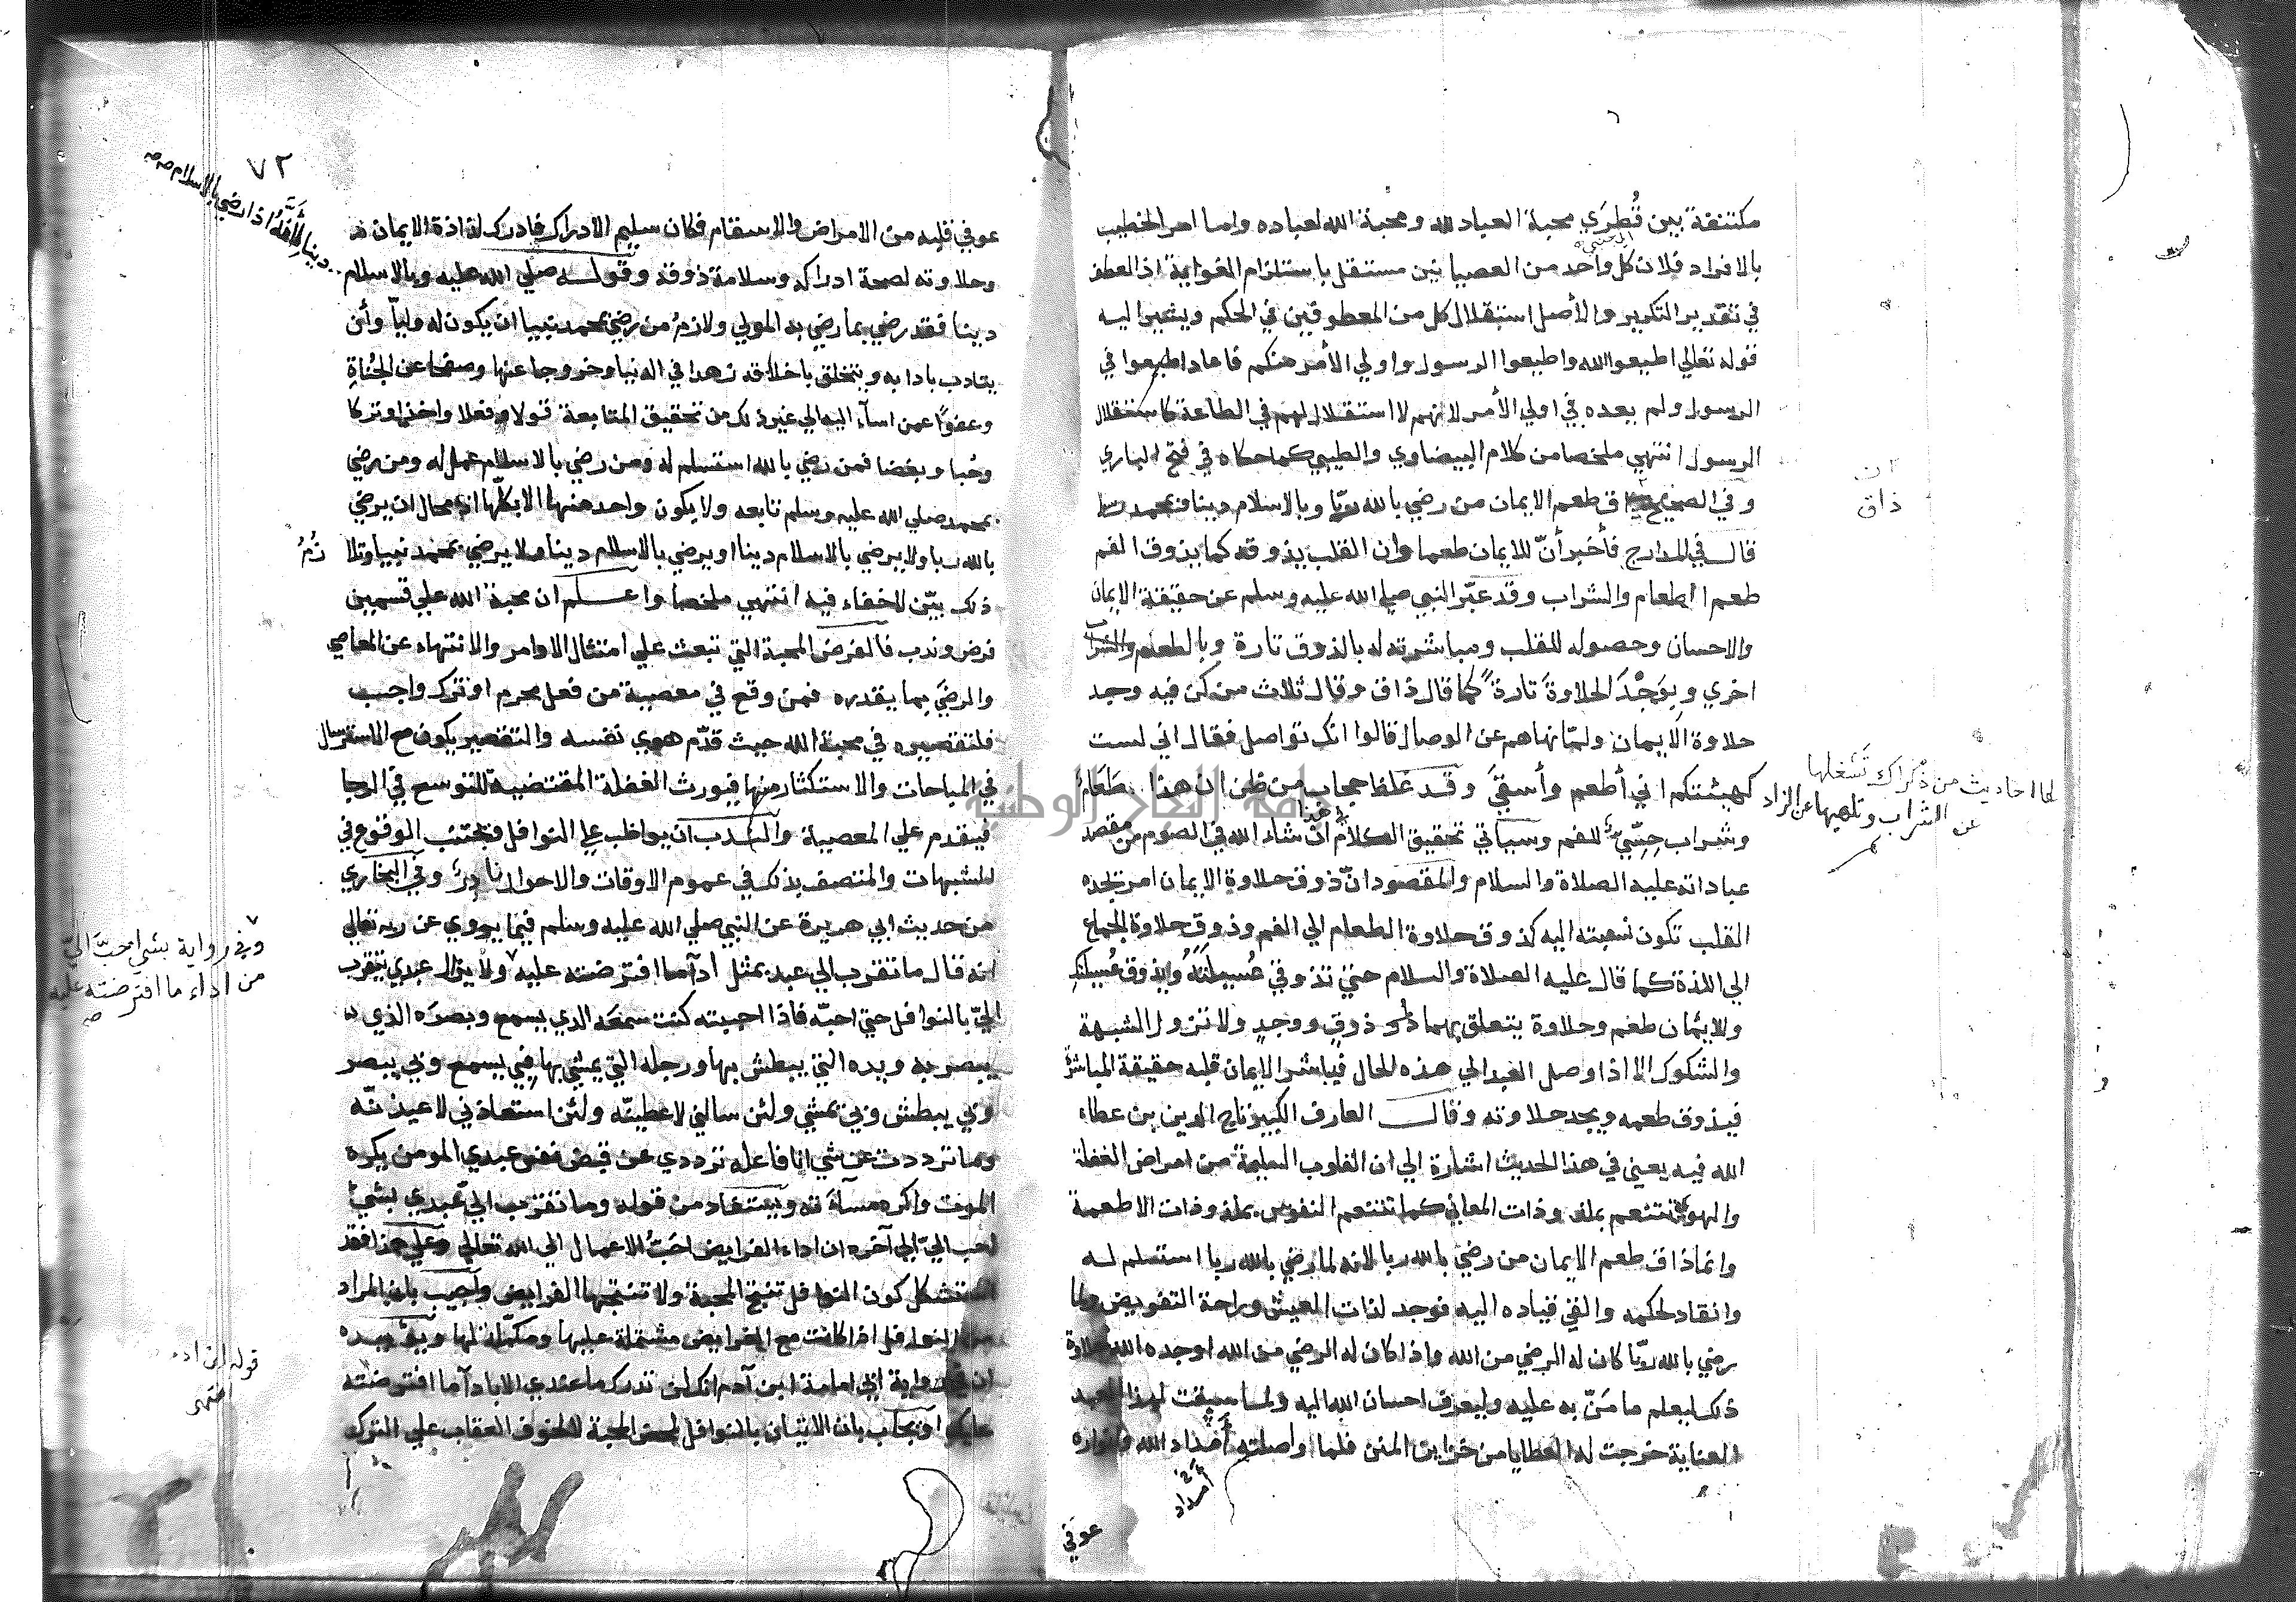 مكتنفة بين قُطرَي محبة العباد لله ومحبة الله لعباده واما امر الخطيب
بالافراد فلان كل واحد من العصيانين مستقل باستلزام الغواية اذ العطف
في تقدير التكرير والأصل استقلال كل من المعطوفين في الحكم ويشير اليه
قوله تعالي اطيعوا الله واطيعوا الرسول واولي الأمر منكم فاعاد اطيعوا في
الرسول ولم يعده في اولي الأمر لانهم لا استقلال لهم في الطاعة كاستقلال
الرسول انتهي ملخصا من كلام البيضاوي والطيبي كما حكاه في فتح الباري
وفي الصحيح ق طعم الايمان من رضي بالله ربّا وبالاسلام دينا وبمحمد رسولا
ان
ذاق
قال في المدارج فأخبر أنّ للايمان طعما وان القلب يذوقه كما يذوق الفم
طعم الطعام والشراب وقد عبّر النبي صلي الله عليه وسلم عن حقيقة الايمان
والاحسان وحصوله للقلب ومباشرته له بالذوق تارة وبالطعام والشراب
اخري وبوَجْد الحلاوة تارة كما قال ذاق وقال ثلاث من كن فيه وجد
حلاوة الايمان ولمّا نهاهم عن الوصال قالوا انك تواصل فقال اني لست
كهيئتكم اني أطعم وأسقي وقد غلظ حجاب من ظن ان هذا طعامٌ
لها احاديث من ذكراك تشغلها
عن الشراب وتلهيها عن الزاد
وشراب حِسّيٌ للفم وسياتي تحقيق الكلام في هذا ان شاء الله في الصوم من مقصد
عباداته عليه الصلاة والسلام والمقصود انّ ذوق حلاوة الايمان امر تجده
القلب تكون نسبته اليه كذوق حلاوة الطعام الي الفم وذوق حلاوة الجماع
الي اللذة كما قال عليه الصلاة والسلام حتي تذوقي عُسيلتَهُ ويذوق عُسيلتكِ
وللايمان طعم وحلاوة يتعلق بهما ذوق ووجد ولا تزول الشبهة
والشكوك الا اذا وصل العبد الي هذه الحال فيباشر الايمان قلبه حقيقة المباشرة
فيذوق طعمه ويجد حلاوته وقال العارف الكبير تاج الدين بن عطاء
الله فيه يعني في هذا الحديث اشارة الي ان القلوب السليمة من امراض الغفلة
والهوي تتنعم بملذوذات المعاني كما تتنعم النفوس بملذوذات الاطعمة
وانما ذاق طعم الايمان من رضي بالله ربا لانه لما رضي بالله ربا استسلم له
وانقاد لحكمه والقي قياده اليه فوجد لذات العيش وراحة التفويض ولما
رضي بالله ربّا كان له الرضي من الله واذا كان له الرضي من الله اوجده الله حلاوة
ذلك ليعلم ما مَنّ به عليه وليعرف احسان الله اليه ولما سبقت لهذا العبد
العناية خرجت له العطايا من خزاين المنن فلما واصلته أمداد الله وانواره
أمداد
عوفي
٧٢
دينا لِأَنَّهُ اذا رضي بالاسلام صح
عوفي قلبه من الامراض والاسقام فكان سليم الادراك فادرك لذاذة الايمان
وحلاوته لصحة ادراكه وسلامة ذوقه وقوله صلي الله عليه وبالاسلام
دينا فقد رضي بما رضي به المولي ولازمُ من رضي بمحمد نبيا ان يكون له وليّا وأن
يتادب بادابه ويتخلق باخلاقه زهدا في الدنيا وخروجا عنها وصفحا عن الجُناةِ
وعفوًا عمن اساء اليه الي غير ذلك من تحقيق المتابعة قولا وفعلا واخذا وتركا
وحُبا وبغضا فمن رضي بالله استسلم له ومن رضي بالاسلام عمل له ومن رضي
بمحمد صلي الله عليه وسلم تابعه ولا يكون واحد منها الا بكلّها اذ محال ان يرضي
بالله ربا ولا يرضي بالاسلام دينا او يرضي بالاسلام دينا ولا يرضي بمحمد نبيا وتلا زُمُ
ذلك بيّن لا خفاء فيه انتهي ملخصا واعلم ان محبة الله علي قسمين
فرض وندب فالفرض المحبة التي تبعث علي امتثال الاوامر والانتهاء عن المعاصي
والرضي بما يقدره فمن وقع في معصية من فعل محرم او ترك واجب
فلتقصيره في محبة الله حيث قدّم هوي نفسه والتقصير يكون مع الاسترسال
في المباحات والاستكثار منها فيورث الغفلة المقتضية للتوسع في الرجا
فيقدم علي المعصية والندب ان يواظب علي النوافل ويجتنب الوقوع في
الشبهات والمتصف بذلك في عموم الاوقات والاحوال نادرٌ وفي البخاري
من حديث ابي هريرة عن النبي صلي الله عليه وسلم فيما يروي عن ربه تعالي
انه قال ما تقرب الي عبد بمثل أداء ما افترضته عليه ولا يزال عبدي يتقرب
وفي رواية بشي احبّ اليّ
من اداء ما افترضته عليه
صح
اليّ بالنوافل حتي احبّه فاذا احببته كنت سمعَه الذي يسمع وبصرَه الذي
يبصر به ويده التي يبطش بها ورجله التي يمشي بها فبي يسمع وبي يبصر
وبي يبطش وبي يمشي ولئن سالني لاعطينّه ولئن استعاذني لاعيذنّه
وما ترددت عن شي انا فاعله ترددي عن قبض نفس عبدي المومن يكره
الموت واكره مسآءَته ويستفاد من قوله وما تقرب اليّ عبدي بشيٍ
احب اليّ الي آخره ان اداء الفرايض احَبُّ الاعمال الي الله تعالي وعلي هذا فقد
استشكل كون النوافل تنتج المحبة ولا تنتجها الفرايض واجيب بان المراد
من النوافل اذا كانت مع الفرايض مشتملة عليها ومكمّلة لها ويؤيده
قوله ابن ادم
ان في رواية ابي امامة ابن آدم انك لن تدرك ما عندي الا باداء ما افترضته
عليك او يجاب بان الاتيان بالنوافل لمحض المحبة لا لخوف العقاب علي الترك
جامعة النجاح الوطنية